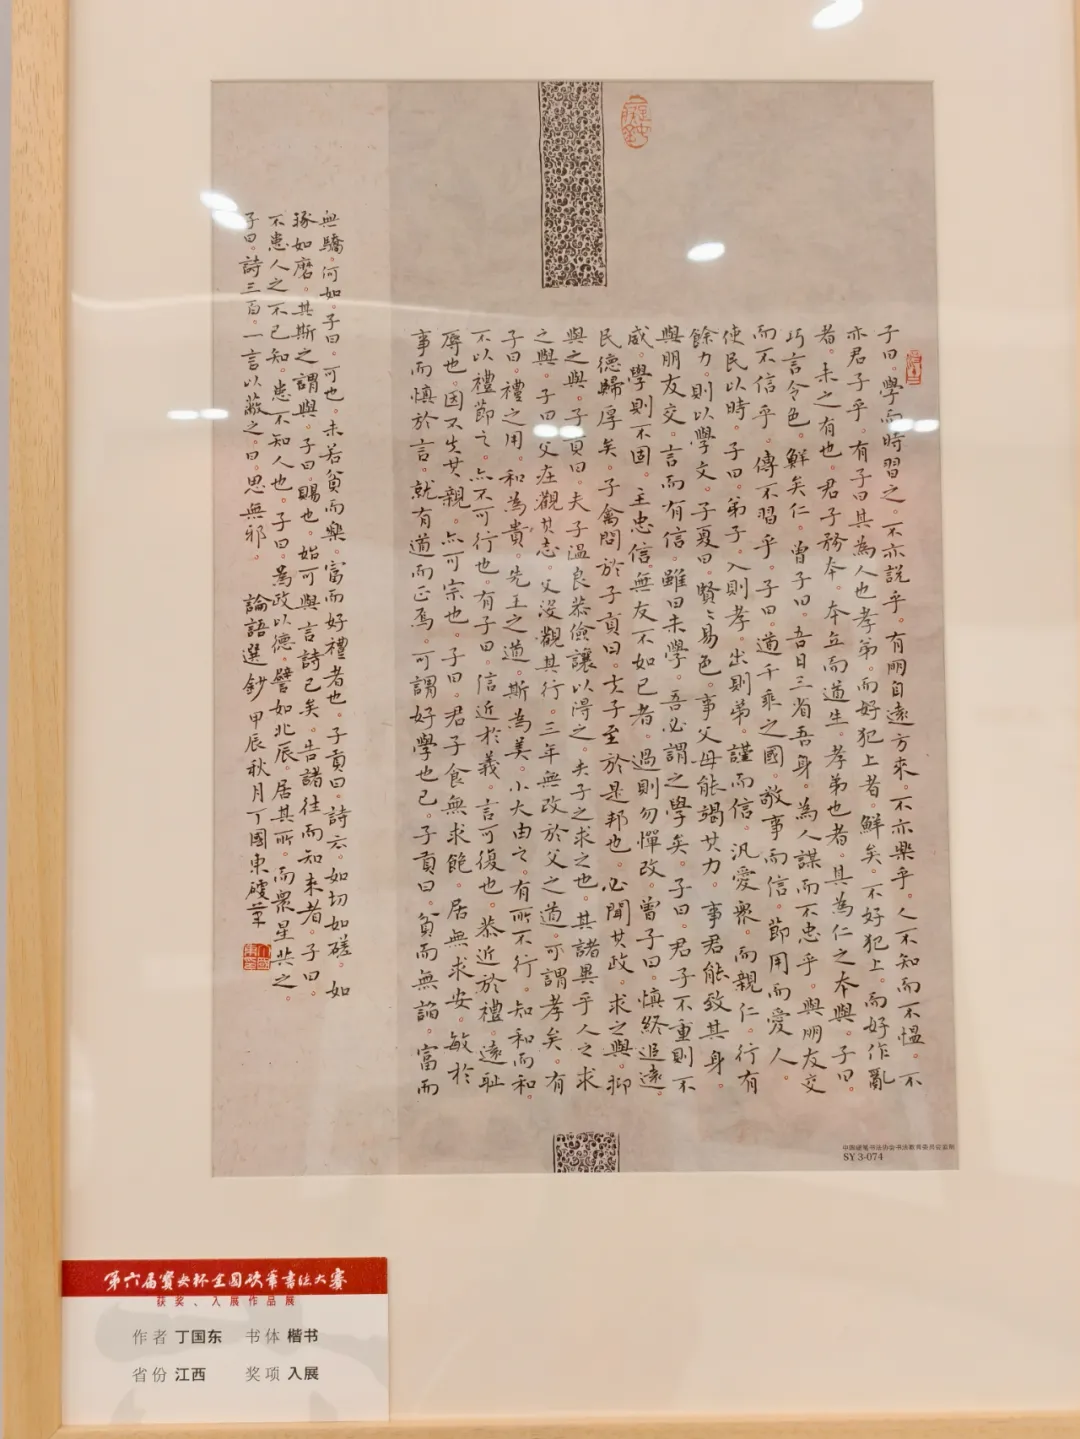 子曰。學而時習之。不亦說乎。有朋自遠方來。不亦樂乎。人不知而不愠。不
亦君子乎。有子曰其為人也孝弟。而好犯上者。鮮矣。不好犯上。而好作亂
者。未之有也。君子務本。本立而道生。孝弟也者。其為仁之本與。子曰。
巧言令色。鮮矣仁。曾子曰。吾日三省吾身。為人謀而不忠乎。與朋友交
而不信乎。傳不習乎。子曰。道千乘之國。敬事而信。節用而愛人。
使民以時。子曰。弟子。入則孝。出則弟。謹而信。汎愛眾。而親仁。行有
餘力。則以學文。子夏曰。賢〻易色。事父母能竭其力。事君能致其身。
與朋友交。言而有信。雖曰未學。吾必謂之學矣。子曰。君子不重則不
威。學則不固。主忠信。無友不如己者。過則勿憚改。曾子曰。慎終追遠。
民德歸厚矣。子禽問於子貢曰。夫子至於是邦也。必聞其政。求之與。抑
與之與。子貢曰。夫子溫良恭儉讓以得之。夫子之求之也。其諸異乎人之求
之與。子曰。父在觀其志。父沒觀其行。三年無改於父之道。可謂孝矣。有
子曰。禮之用。和為貴。先王之道。斯為美。小大由之。有所不行。知和而和。
不以禮節之。亦不可行也。有子曰。信近於義。言可復也。恭近於禮。遠恥
辱也。因不失其親。亦可宗也。子曰。君子食無求飽。居無求安。敏於
事而慎於言。就有道而正焉。可謂好學也已。子貢曰。貧而無諂。富而
無驕。何如。子曰。可也。未若貧而樂。富而好禮者也。子貢曰。詩云。如切如磋。如
琢如磨。其斯之謂與。子曰。賜也。始可與言詩已矣。告諸往而知來者。子曰。
不患人之不己知。患不知人也。子曰。為政以德。譬如北辰。居其所。而眾星共之。
子曰。詩三百。一言以蔽之。曰。思無邪。 論語選鈔 甲辰秋月丁國東硬筆
中国硬笔书法协会书法教育委员会监制
SY 3-074
第六届寰安杯全国硬笔书法大赛
获奖、入展作品展
作者 丁国东 书体 楷书
省份 江西 奖项 入展